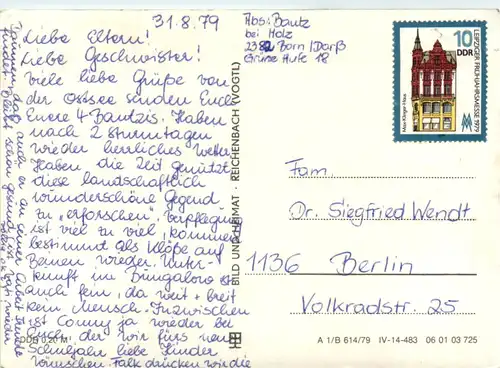 31.8.79
Liebe Eltern!
Liebe Geschwister!
Viele liebe Grüße von
der Ostsee senden Euch
Euere 4 Bautzis. Haben
nach 2 Sturmtagen
wieder herrliches Wetter.
Haben die Zeit genützt
diese landschaftlich
wunderschöne Gegend
zu "erforschen". Verpflegung
ist viel zu viel, kommen
bestimmt als Klöße auf
Beinen wieder. Unter-
kunft im Bungalow ist
auch fein, da weit + breit
kein Mensch. Inzwischen
ist Conny ja wieder bei
Euch, der wir fürs neue
Schuljahr liebe Kinder
wünschen. Falk drücken wir die
Daumen, daß auch er an seiner Arbeit Freude
findet. Bleibt schön gesund,
Abs: Bautz
bei Holz
2382 Born / Darß
Grüne Hufe 18
LEIPZIGER FRÜHJAHRSMESSE 1979
10
DDR
Max-Klinger-Haus
MM
BILD UND HEIMAT · REICHENBACH (VOGTL)
Fam.
Dr. Siegfried Wendt
1136 Berlin
Volkradstr. 25
DDR 0,20 M
A 1/B 614/79 IV-14-483 06 01 03 725